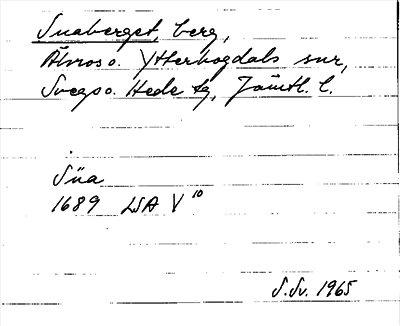 Snaberget, berg,
Älvros o. Ytterhogdals snr,
Svegs o. Hede tg, Jämtl. l.
Sńa
1689 LSA V 10
S.Sv. 1965